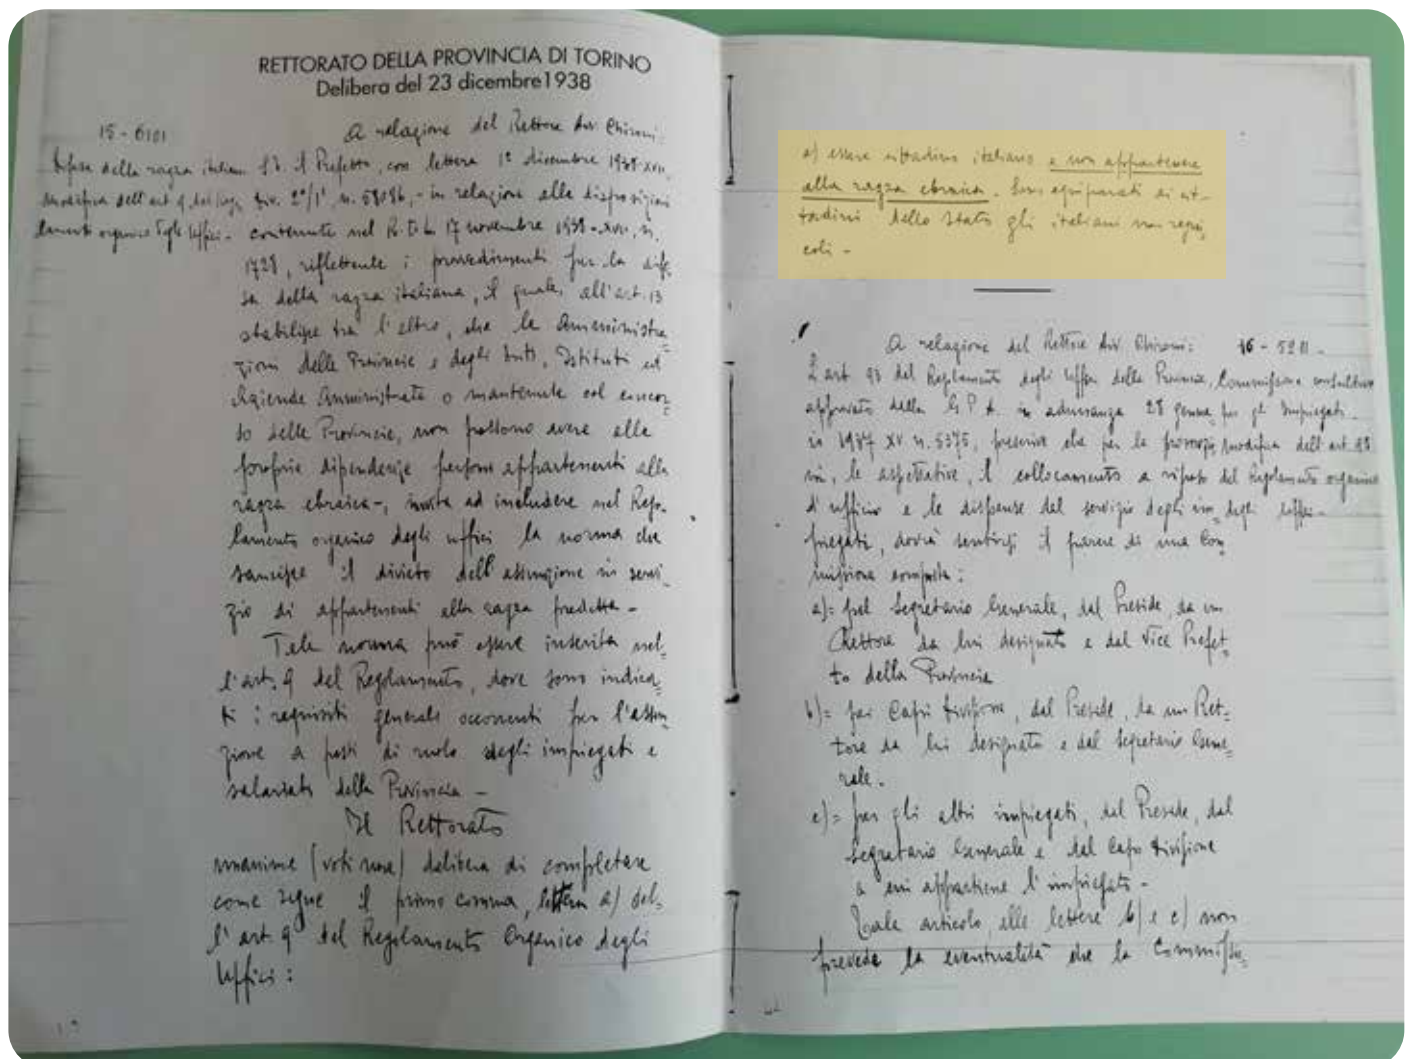 RETTORATO DELLA PROVINCIA DI TORINO
Delibera del 23 dicembre 1938
15 - 6101
Difesa della razza italiana
Modifica dell'art. 9 del Rego
lamento organico degli Uffici -
A relazione del Rettore Avv. Chironi:
S. E. il Prefetto, con lettera 1° dicembre 1938-XVII,
Div. 2ª/1ª, n. 58086, - in relazione alle disposizioni
contenute nel R. D. L. 17 novembre 1938-XVII, n.
1728, riflettente i provvedimenti per la dife
sa della razza italiana, il quale, all'art. 13
stabilisce tra l'altro, che le Amministra
zioni delle Provincie e degli Enti, Istituti ed
Aziende Amministrate o mantenute col concor
so delle Provincie, non possono avere alle
proprie dipendenze persone appartenenti alla
razza ebraica -, invita ad includere nel Rego
lamento organico degli uffici la norma che
sancisce il divieto dell'assunzione in servi
zio di appartenenti alla razza predetta -
Tale norma può essere inserita nel
l'art. 9 del Regolamento, dove sono indica
ti i requisiti generali occorrenti per l'assun
zione a posti di ruolo degli impiegati e
salariati della Provincia -
Il Rettorato
unanime (voti nove) delibera di completare
come segue il primo comma, lettera a) del
l'art. 9 del Regolamento Organico degli
Uffici:
a) essere cittadino italiano e non appartenere
alla razza ebraica. Sono equiparati ai cit-
tadini dello Stato gli italiani non regni
coli -
A relazione del Rettore Avv. Chironi:
16 - 5211 -
Commissione consultiva
per gl'Impiegati -
Modifica dell'art. 93
del Regolamento organico
degli Uffici -
L'art. 93 del Regolamento degli Uffici della Provincia,
approvato dalla G. P. A. in adunanza 28 genna
io 1937 XV n. 5375, prescrive che per le promozio
ni, le aspettative, il collocamento a riposo
d'ufficio e le dispense dal servizio degli im
piegati, dovrà sentirsi il parere di una Com
missione composta:
a)= pel Segretario Generale, dal Preside, da un
Rettore da lui designato e dal Vice Prefet
to della Provincia
b)= pei Capi Divisione, dal Preside, da un Ret=
tore da lui designato e dal Segretario Gene=
rale.
c)= per gli altri impiegati, dal Preside, dal
Segretario Generale e dal Capo Divisione
a cui appartiene l'impiegato -
Tale articolo, alle lettere b) e c) non
prevede la eventualità che la Commissio=